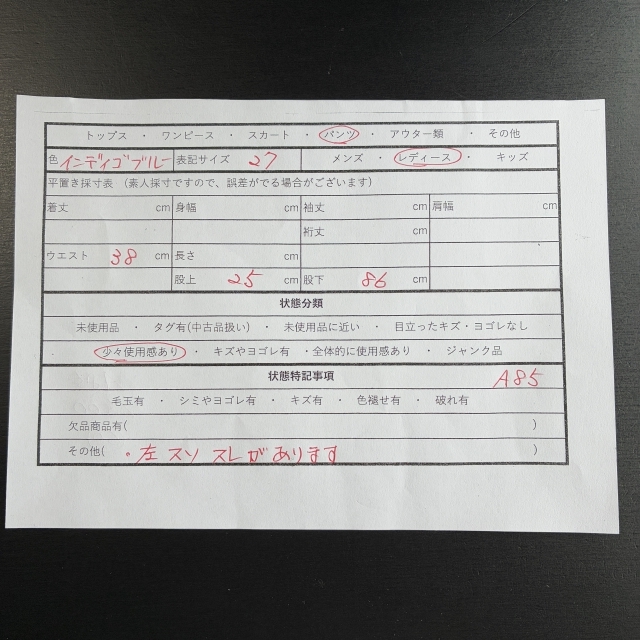 トップス ・ ワンピース ・ スカート ・ パンツ ・ アウター類 ・ その他
色 インディゴブルー 表記サイズ 27 メンズ ・ レディース ・ キッズ
平置き採寸表 (素人採寸ですので、誤差がでる場合がございます)
着丈 cm 身幅 cm 袖丈 cm 肩幅 cm
裄丈 cm
ウエスト 38 cm 長さ cm
股上 25 cm 股下 86 cm
状態分類
未使用品 ・ タグ有(中古品扱い) ・ 未使用品に近い ・ 目立ったキズ・ヨゴレなし
少々使用感あり ・ キズやヨゴレ有 ・全体的に使用感あり ・ ジャンク品
状態特記事項 A85
毛玉有 ・ シミやヨゴレ有 ・ キズ有 ・ 色褪せ有 ・ 破れ有
欠品商品有( )
その他( ・左 スソ スレがあります )